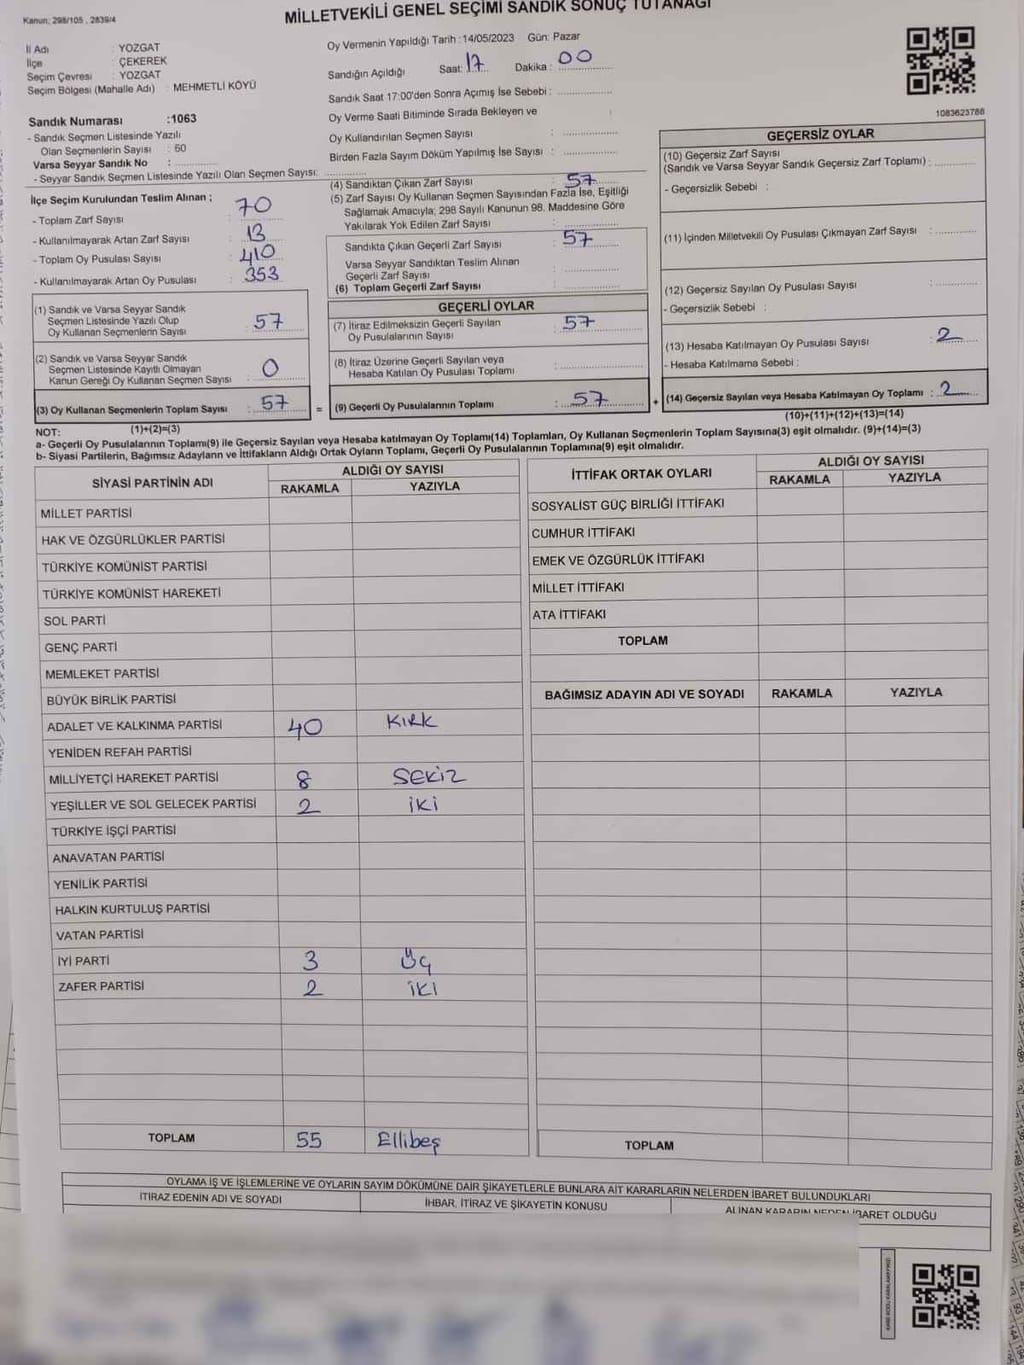 Kanun; 298/105 , 2839/4
MİLLETVEKİLİ GENEL SEÇİMİ SANDIK SONUÇ TUTANAĞI
İl Adı : YOZGAT
İlçe : ÇEKEREK
Seçim Çevresi : YOZGAT
Seçim Bölgesi (Mahalle Adı) : MEHMETLİ KÖYÜ
Sandık Numarası :1063
- Sandık Seçmen Listesinde Yazılı
Olan Seçmenlerin Sayısı : 60
Varsa Seyyar Sandık No :
- Seyyar Sandık Seçmen Listesinde Yazılı Olan Seçmen Sayısı:
Oy Vermenin Yapıldığı Tarih :14/05/2023 Gün: Pazar
Sandığın Açıldığı Saat: 17 Dakika : 00
Sandık Saat 17:00'den Sonra Açımış İse Sebebi :
Oy Verme Saati Bitiminde Sırada Bekleyen ve
Oy Kullandırılan Seçmen Sayısı :
Birden Fazla Sayım Döküm Yapılmış İse Sayısı :
1083623788
İlçe Seçim Kurulundan Teslim Alınan ;
- Toplam Zarf Sayısı : 70
- Kullanılmayarak Artan Zarf Sayısı : 13
- Toplam Oy Pusulası Sayısı : 410
- Kullanılmayarak Artan Oy Pusulası : 353
(1) Sandık ve Varsa Seyyar Sandık
Seçmen Listesinde Yazılı Olup
Oy Kullanan Seçmenlerin Sayısı : 57
(2) Sandık ve Varsa Seyyar Sandık
Seçmen Listesinde Kayıtlı Olmayan
Kanun Gereği Oy Kullanan Seçmen Sayısı : 0
(3) Oy Kullanan Seçmenlerin Toplam Sayısı : 57
(1)+(2)=(3)
(4) Sandıktan Çıkan Zarf Sayısı : 57
(5) Zarf Sayısı Oy Kullanan Seçmen Sayısından Fazla İse, Eşitliği
Sağlamak Amacıyla; 298 Sayılı Kanunun 98. Maddesine Göre
Yakılarak Yok Edilen Zarf Sayısı :
Sandıkta Çıkan Geçerli Zarf Sayısı : 57
Varsa Seyyar Sandıktan Teslim Alınan
Geçerli Zarf Sayısı :
(6) Toplam Geçerli Zarf Sayısı :
GEÇERLİ OYLAR
(7) İtiraz Edilmeksizin Geçerli Sayılan
Oy Pusulalarının Sayısı : 57
(8) İtiraz Üzerine Geçerli Sayılan veya
Hesaba Katılan Oy Pusulası Toplamı :
= (9) Geçerli Oy Pusulalarının Toplamı : 57
GEÇERSİZ OYLAR
(10) Geçersiz Zarf Sayısı
(Sandık ve Varsa Seyyar Sandık Geçersiz Zarf Toplamı) :
- Geçersizlik Sebebi :
(11) İçinden Milletvekili Oy Pusulası Çıkmayan Zarf Sayısı :
(12) Geçersiz Sayılan Oy Pusulası Sayısı :
- Geçersizlik Sebebi :
(13) Hesaba Katılmayan Oy Pusulası Sayısı : 2
- Hesaba Katılmama Sebebi :
+ (14) Geçersiz Sayılan veya Hesaba Katılmayan Oy Toplamı : 2
(10)+(11)+(12)+(13)=(14)
NOT:
a- Geçerli Oy Pusulalarının Toplamı(9) ile Geçersiz Sayılan veya Hesaba katılmayan Oy Toplamı(14) Toplamları, Oy Kullanan Seçmenlerin Toplam Sayısına(3) eşit olmalıdır. (9)+(14)=(3)
b- Siyasi Partilerin, Bağımsız Adayların ve İttifakların Aldığı Ortak Oyların Toplamı, Geçerli Oy Pusulalarının Toplamına(9) eşit olmalıdır.
SİYASİ PARTİNİN ADI ALDIĞI OY SAYISI
RAKAMLA YAZIYLA
MİLLET PARTİSİ
HAK VE ÖZGÜRLÜKLER PARTİSİ
TÜRKİYE KOMÜNİST PARTİSİ
TÜRKİYE KOMÜNİST HAREKETİ
SOL PARTİ
GENÇ PARTİ
MEMLEKET PARTİSİ
BÜYÜK BİRLİK PARTİSİ
ADALET VE KALKINMA PARTİSİ 40 KIRK
YENİDEN REFAH PARTİSİ
MİLLİYETÇİ HAREKET PARTİSİ 8 SEKİZ
YEŞİLLER VE SOL GELECEK PARTİSİ 2 İKİ
TÜRKİYE İŞÇİ PARTİSİ
ANAVATAN PARTİSİ
YENİLİK PARTİSİ
HALKIN KURTULUŞ PARTİSİ
VATAN PARTİSİ
İYİ PARTİ 3 Üç
ZAFER PARTİSİ 2 İKİ
TOPLAM 55 Ellibeş
İTTİFAK ORTAK OYLARI ALDIĞI OY SAYISI
RAKAMLA YAZIYLA
SOSYALİST GÜÇ BİRLİĞİ İTTİFAKI
CUMHUR İTTİFAKI
EMEK VE ÖZGÜRLÜK İTTİFAKI
MİLLET İTTİFAKI
ATA İTTİFAKI
TOPLAM
BAĞIMSIZ ADAYIN ADI VE SOYADI RAKAMLA YAZIYLA
TOPLAM
OYLAMA İŞ VE İŞLEMLERİNE VE OYLARIN SAYIM DÖKÜMÜNE DAİR ŞİKAYETLERLE BUNLARA AİT KARARLARIN NELERDEN İBARET BULUNDUKLARI
İTİRAZ EDENİN ADI VE SOYADI İHBAR, İTİRAZ VE ŞİKAYETİN KONUSU ALINAN KARARIN NEDEN İBARET OLDUĞU